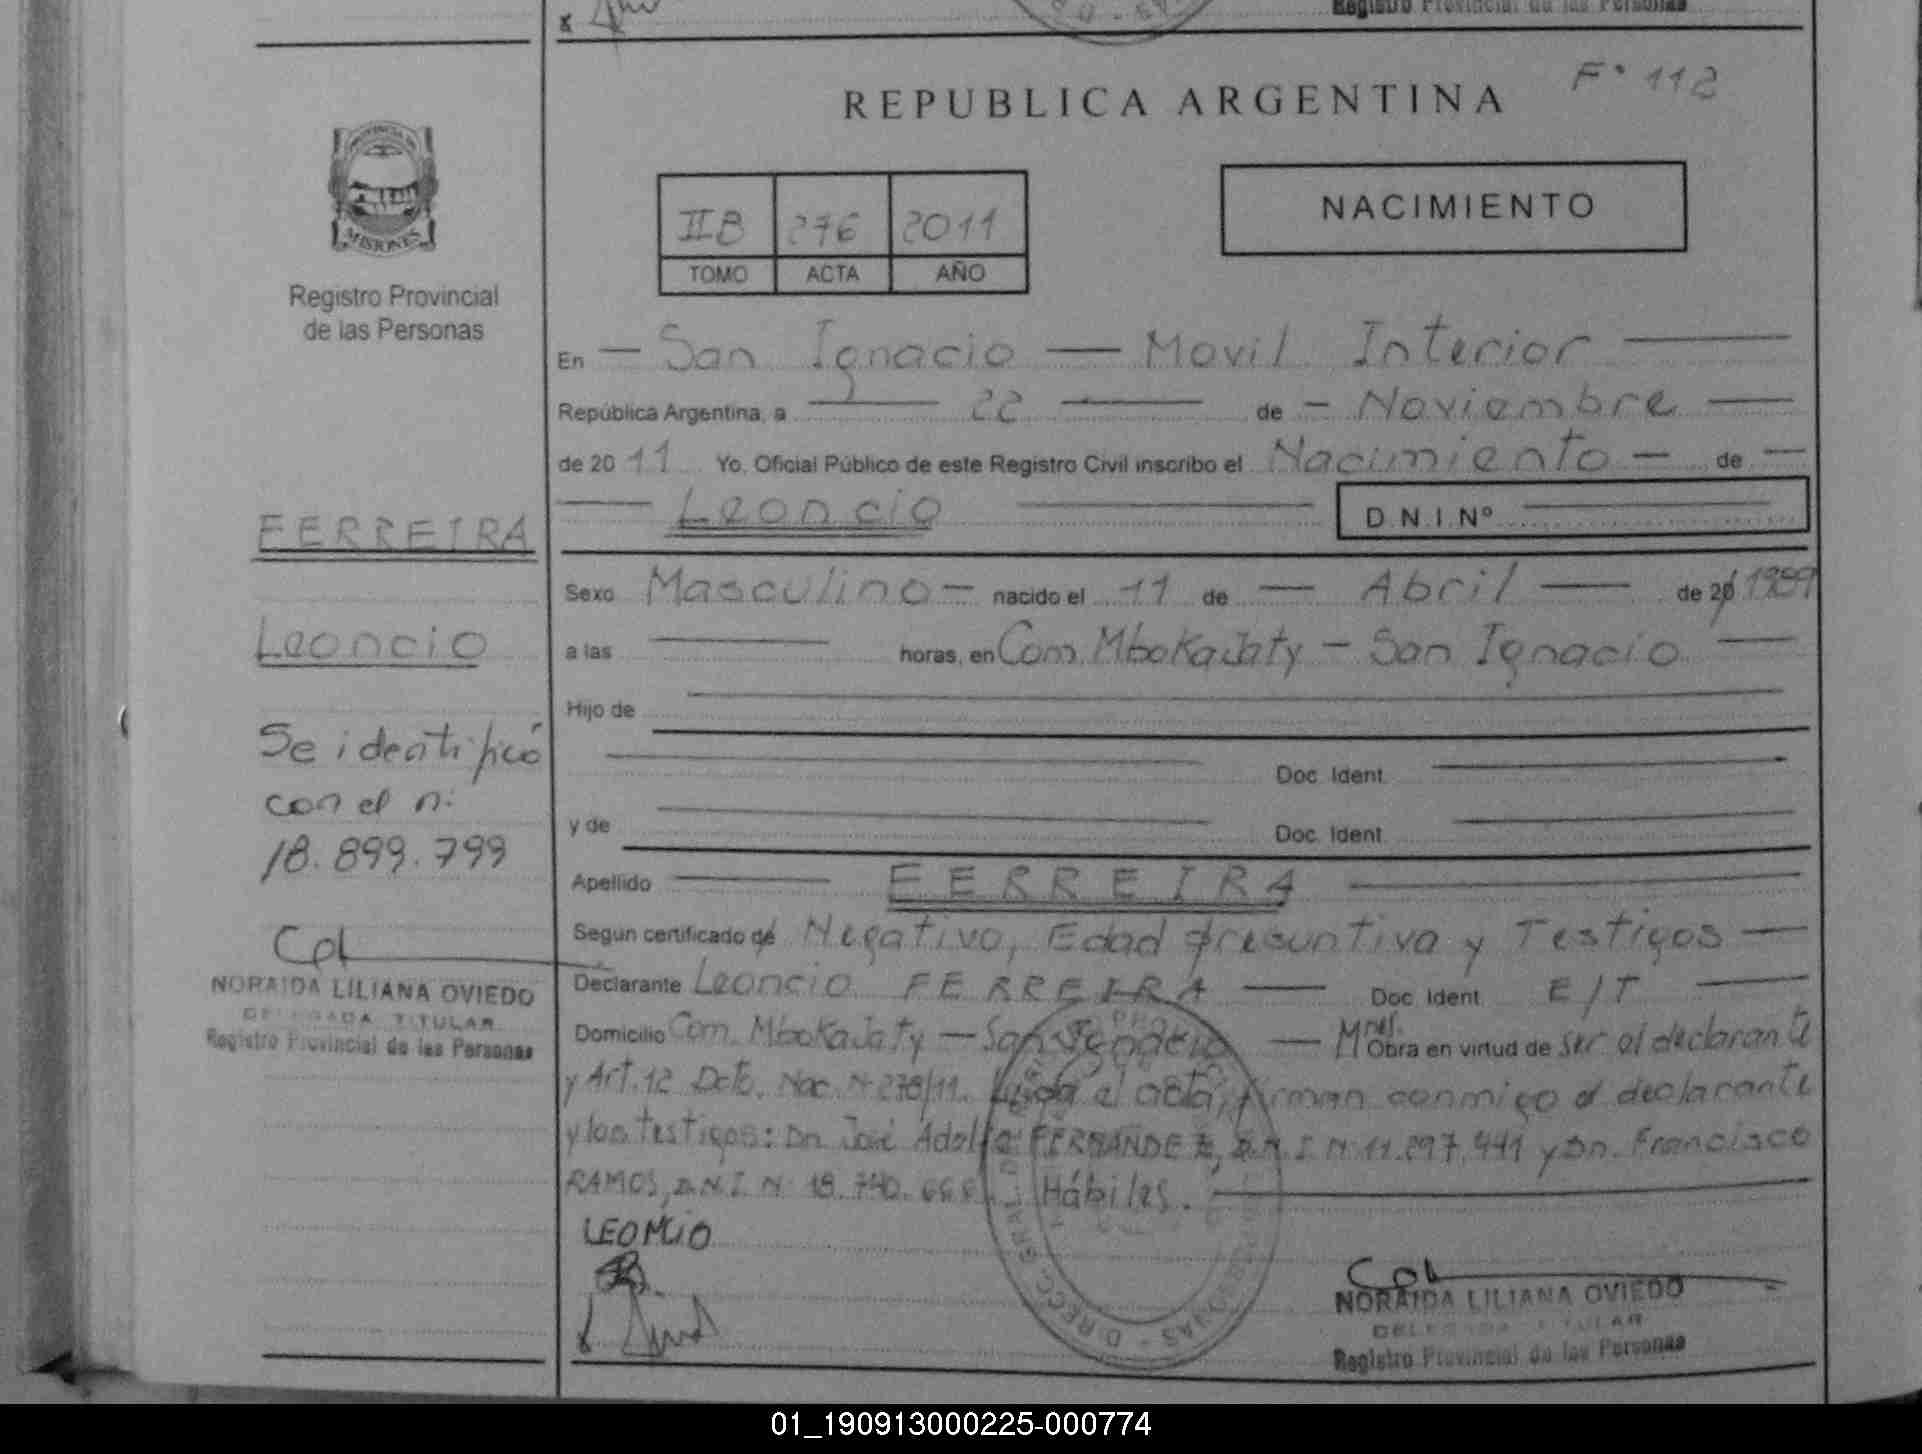 Registro Provincial de las Personas
F° 112
REPUBLICA ARGENTINA
PROVINCIA DE
MISIONES
Registro Provincial
de las Personas
II B 276 2011
TOMO ACTA AÑO
NACIMIENTO
En — San Ignacio — Movil Interior —
República Argentina, a — 22 — de — Noviembre —
de 2011 Yo, Oficial Público de este Registro Civil inscribo el Nacimiento — de —
— Leoncio —
D.N.I.Nº —
FERREIRA
Leoncio
Se identificó
con el n:
18.899.799
NORAIDA LILIANA OVIEDO
DELEGADA TITULAR
Registro Provincial de las Personas
Sexo Masculino — nacido el 11 de — Abril — de 20 / 1989
a las — horas, en Com. MboKaJaty — San Ignacio —
Hijo de —
— Doc. Ident. —
y de — Doc. Ident. —
Apellido — FERREIRA —
Segun certificado de Negativo, Edad presuntiva y Testigos —
Declarante Leoncio FERREIRA — Doc. Ident. E/T —
Domicilio Com. MboKaJaty — San Ignacio — Mnes. Obra en virtud de ser el declarante
y Art. 12 Dcto. Nac. N 278/11. Leída el acta, firman conmigo el declarante
y los testigos: Dn. José Adolfo FERNANDEZ, D.N.I. N 11.297.441 y Dn. Francisco
RAMOS, D.N.I. N 18.740.666. Hábiles. —
LEONCIO
NORAIDA LILIANA OVIEDO
DELEGADA TITULAR
Registro Provincial de las Personas
01_190913000225-000774